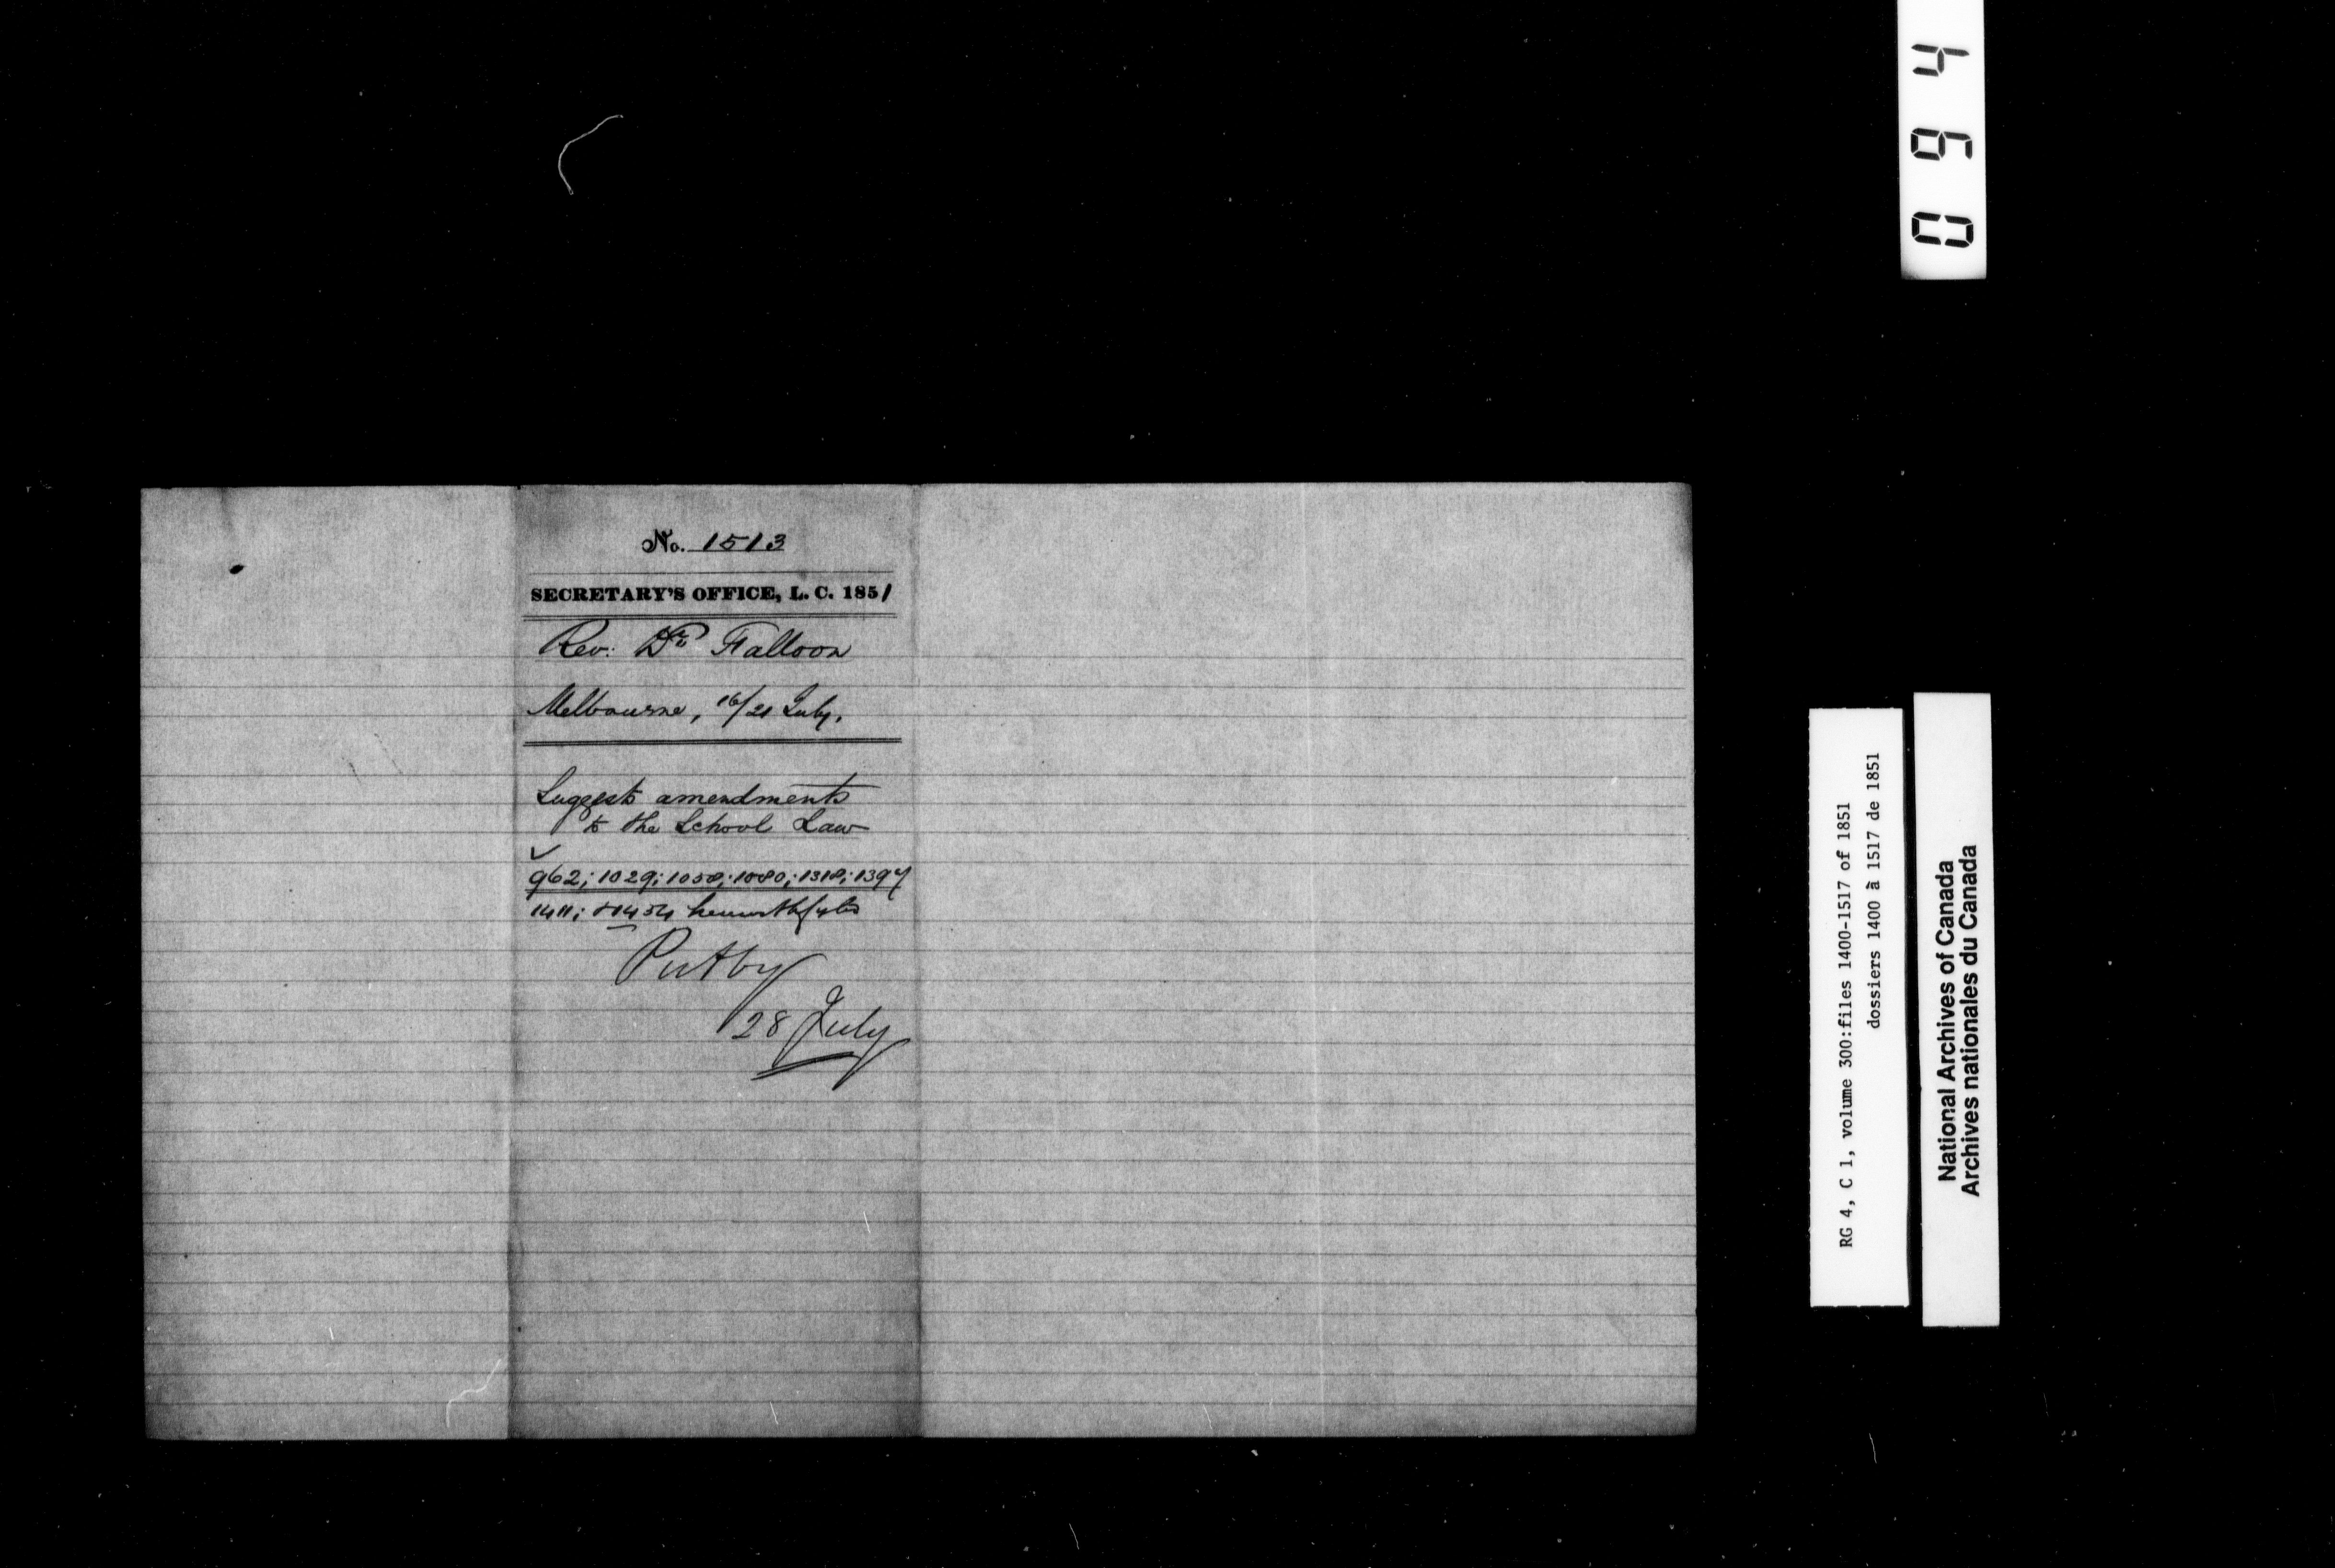 No. 1513
SECRETARY'S OFFICE, L. C. 1851
Rev: Dr Falloon
Melbourne, 16/21 July.
Suggests amendments
to the School Law
962; 1029; 1058; 1080; 1318; 1397
1411; & 1454 herewith
Put by
28 July
0 9 4
RG 4, C 1, volume 300:files 1400-1517 of 1851
dossiers 1400 à 1517 de 1851
National Archives of Canada
Archives nationales du Canada